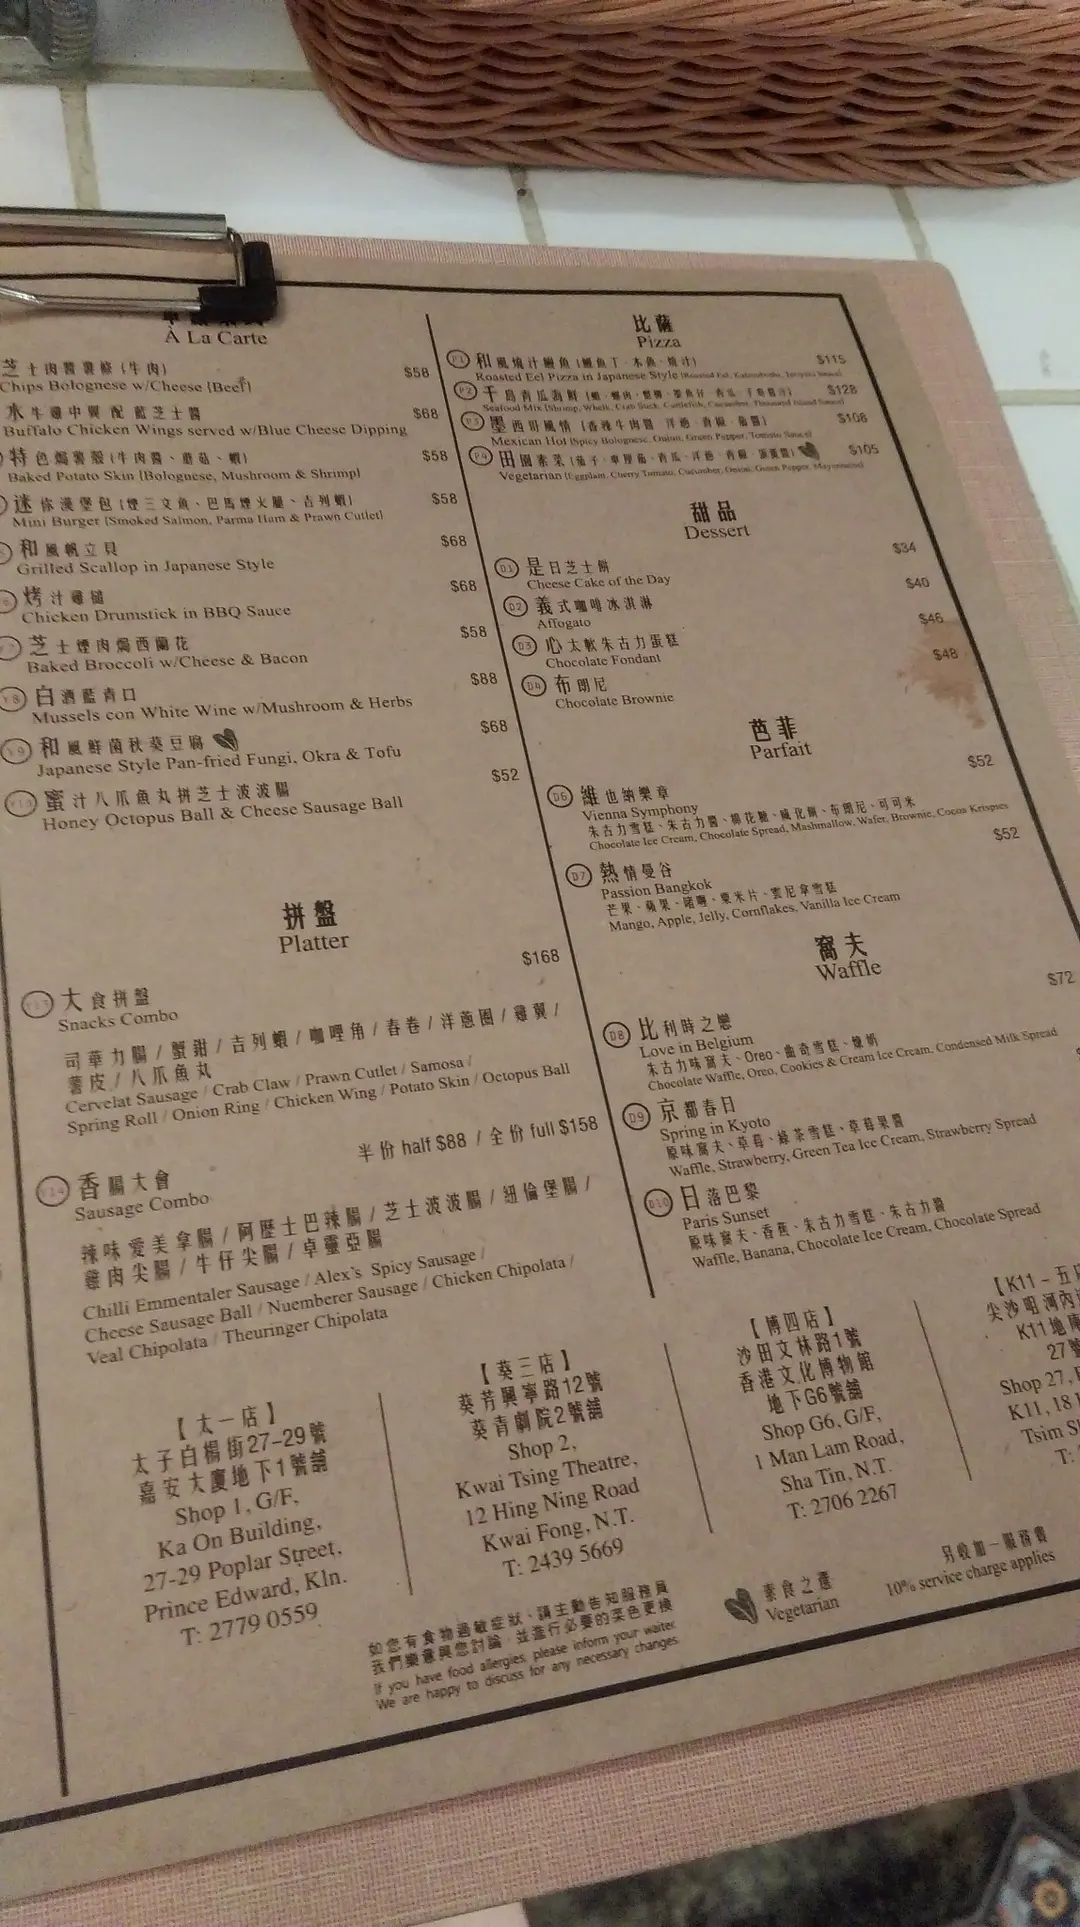 À La Carte
芝士肉醬薯條 (牛肉)
Chips Bolognese w/Cheese [Beef]
$58
水牛雞中翼配藍芝士醬
Buffalo Chicken Wings served w/Blue Cheese Dipping
$68
特色焗薯殼 (牛肉醬、蘑菇、蝦)
Baked Potato Skin [Bolognese, Mushroom & Shrimp]
$58
迷你漢堡包 (煙三文魚、巴馬煙火腿、吉列蝦)
Mini Burger [Smoked Salmon, Parma Ham & Prawn Cutlet]
$58
和風帆立貝
Grilled Scallop in Japanese Style
$68
烤汁雞槌
Chicken Drumstick in BBQ Sauce
$68
芝士煙肉焗西蘭花
Baked Broccoli w/Cheese & Bacon
$58
白酒藍青口
Mussels con White Wine w/Mushroom & Herbs
$88
Y9 和風鮮菌秋葵豆腐
Japanese Style Pan-fried Fungi, Okra & Tofu
$68
Y10 蜜汁八爪魚丸拼芝士波波腸
Honey Octopus Ball & Cheese Sausage Ball
$52
拼盤
Platter
大食拼盤
Snacks Combo
$168
司華力腸 / 蟹鉗 / 吉列蝦 / 咖哩角 / 春卷 / 洋蔥圈 / 雞翼 /
薯皮 / 八爪魚丸
Cervelat Sausage / Crab Claw / Prawn Cutlet / Samosa /
Spring Roll / Onion Ring / Chicken Wing / Potato Skin / Octopus Ball
半份 half $88 / 全份 full $158
Y14 香腸大會
Sausage Combo
辣味愛美拿腸 / 阿歷士巴辣腸 / 芝士波波腸 / 紐倫堡腸 /
雞肉尖腸 / 牛仔尖腸 / 卓靈亞腸
Chilli Emmentaler Sausage / Alex's Spicy Sausage /
Cheese Sausage Ball / Nuemberer Sausage / Chicken Chipolata /
Veal Chipolata / Theuringer Chipolata
比薩
Pizza
P1 和風燒汁鰻魚 (鰻魚丁、木魚、燒汁)
Roasted Eel Pizza in Japanese Style
$115
P2 千島青瓜海鮮
Seafood Mix [Shrimp, Whelk, Crab Stick, Cuttlefish, Cucumber, Thousand Island Sauce]
$128
P3 墨西哥風情 (香辣牛肉醬、洋蔥、青椒、茄醬)
Mexican Hot [Spicy Bolognese, Onion, Green Pepper, Tomato Sauce]
$108
P4 田園素菜
Vegetarian [Eggplant, Cherry Tomato, Cucumber, Onion, Green Pepper, Mayonnaise]
$105
甜品
Dessert
D1 是日芝士餅
Cheese Cake of the Day
$34
D2 義式咖啡冰淇淋
Affogato
$40
D3 心太軟朱古力蛋糕
Chocolate Fondant
$46
D4 布朗尼
Chocolate Brownie
$48
芭菲
Parfait
D6 維也納樂章
Vienna Symphony
$52
朱古力雪糕、朱古力醬、棉花糖、威化餅、布朗尼、可可米
Chocolate Ice Cream, Chocolate Spread, Mashmallow, Wafer, Brownie, Cocoa Krispies
D7 熱情曼谷
Passion Bangkok
$52
芒果、蘋果、啫喱、粟米片、雲尼拿雪糕
Mango, Apple, Jelly, Cornflakes, Vanilla Ice Cream
窩夫
Waffle
D8 比利時之戀
Love in Belgium
$72
朱古力味窩夫、Oreo、曲奇雪糕、煉奶
Chocolate Waffle, Oreo, Cookies & Cream Ice Cream, Condensed Milk Spread
D9 京都春日
Spring in Kyoto
原味窩夫、草莓、綠茶雪糕、草莓果醬
Waffle, Strawberry, Green Tea Ice Cream, Strawberry Spread
D10 日落巴黎
Paris Sunset
原味窩夫、香蕉、朱古力雪糕、朱古力醬
Waffle, Banana, Chocolate Ice Cream, Chocolate Spread
【太一店】
太子白楊街27-29號
嘉安大廈地下1號舖
Shop 1, G/F,
Ka On Building,
27-29 Poplar Street,
Prince Edward, Kln.
T: 2779 0559
【葵三店】
葵芳興寧路12號
葵青劇院2號舖
Shop 2,
Kwai Tsing Theatre,
12 Hing Ning Road
Kwai Fong, N.T.
T: 2439 5669
【博四店】
沙田文林路1號
香港文化博物館
地下G6號舖
Shop G6, G/F,
1 Man Lam Road,
Sha Tin, N.T.
T: 2706 2267
【K11-五店
尖沙咀河內
K11地庫
27號
Shop 27,
K11, 18
Tsim S
T:
如您有食物過敏症狀、請主動告知服務員
我們樂意與您討論、並進行必要的菜色更換
If you have food allergies, please inform your waiter.
We are happy to discuss for any necessary changes.
素食之選
Vegetarian
另收加一服務費
10% service charge applies